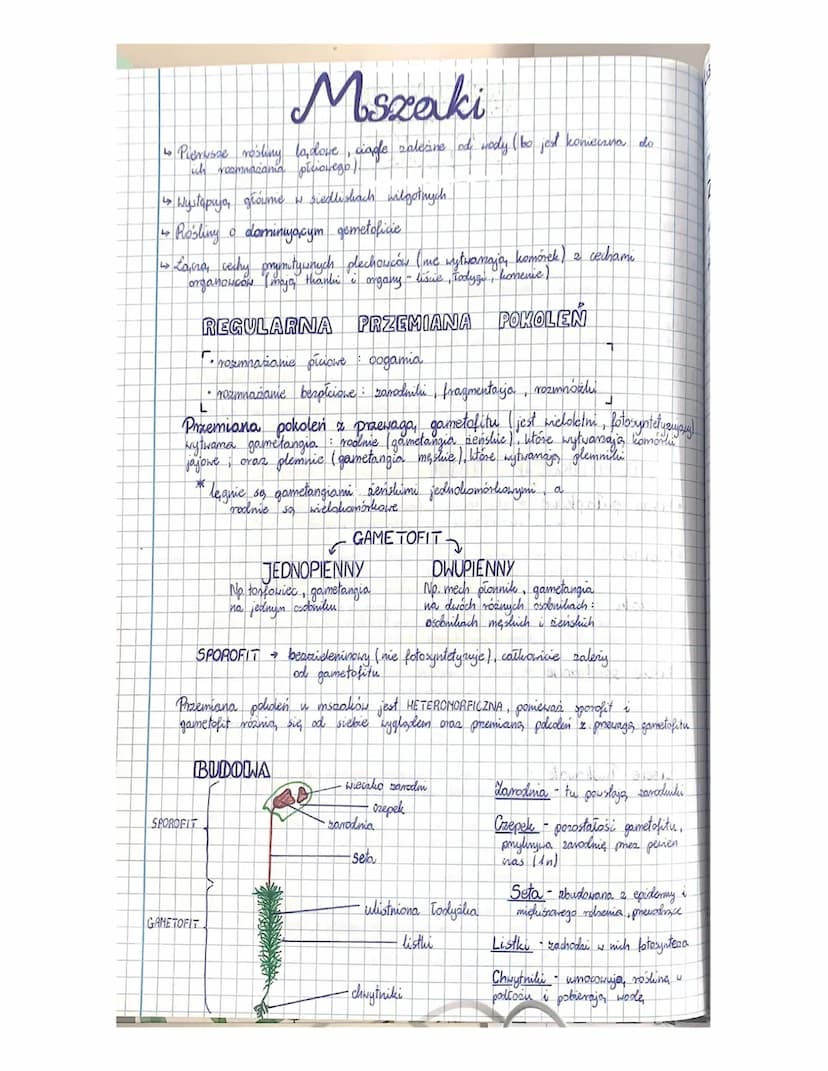 Mszaki
↳ Pierwsze rośliny lądowe, ciągle zależne od wody (bo jest konieczna do
ich rozmnażania płciowego)
↳ Występują głównie w siedliskach wilgotnych
↳ Rośliny o dominującym gametoficie
↳ Łączą cechy prymitywnych plechowców (nie wytwarzają komórek) z cechami
organowców (mają tkanki i organy - liście, łodygi, korzenie)
REGULARNA PRZEMIANA POKOLEŃ
• rozmnażanie płciowe : oogamia
• rozmnażanie bezpłciowe : zarodniki, fragmentacja, rozmnóżki
Przemiana pokoleń z przewagą gametofitu (jest wieloletni, fotosyntetyzujący)
wytwarza gametangia : rodnie (gametangia żeńskie), które wytwarzają komórki
jajowe, oraz plemnie (gametangia męskie), które wytwarzają plemniki
* lęgnie są gametangiami żeńskimi jednokomórkowymi, a
rodnie są wielokomórkowe
GAMETOFIT
JEDNOPIENNY DWUPIENNY
Np. torfowiec, gametangia Np. mech płonnik, gametangia
na jednym osobniku na dwóch różnych osobnikach :
osobnikach męskich i żeńskich
SPOROFIT → bezzieleniowy (nie fotosyntetyzuje), całkowicie zależy
od gametofitu
Przemiana pokoleń u mszaków jest HETEROMORFICZNA, ponieważ sporofit i
gametofit różnią się od siebie wyglądem oraz przemianą pokoleń z przewagą gametofitu
BUDOWA
wieczko zarodni
czepek
zarodnia
SPOROFIT
seta
ulistniona łodyżka
GAMETOFIT
listki
chwytniki
Zarodnia - tu powstają zarodniki
Czepek - pozostałości gametofitu,
przykrywa zarodnię przez pewien
czas (1n)
Seta - zbudowana z epidermy i
miękiszowego rdzenia, przewodzące
Listki - zachodzi w nich fotosynteza
Chwytniki - umocowują roślinę w
podłożu i pobierają wodę